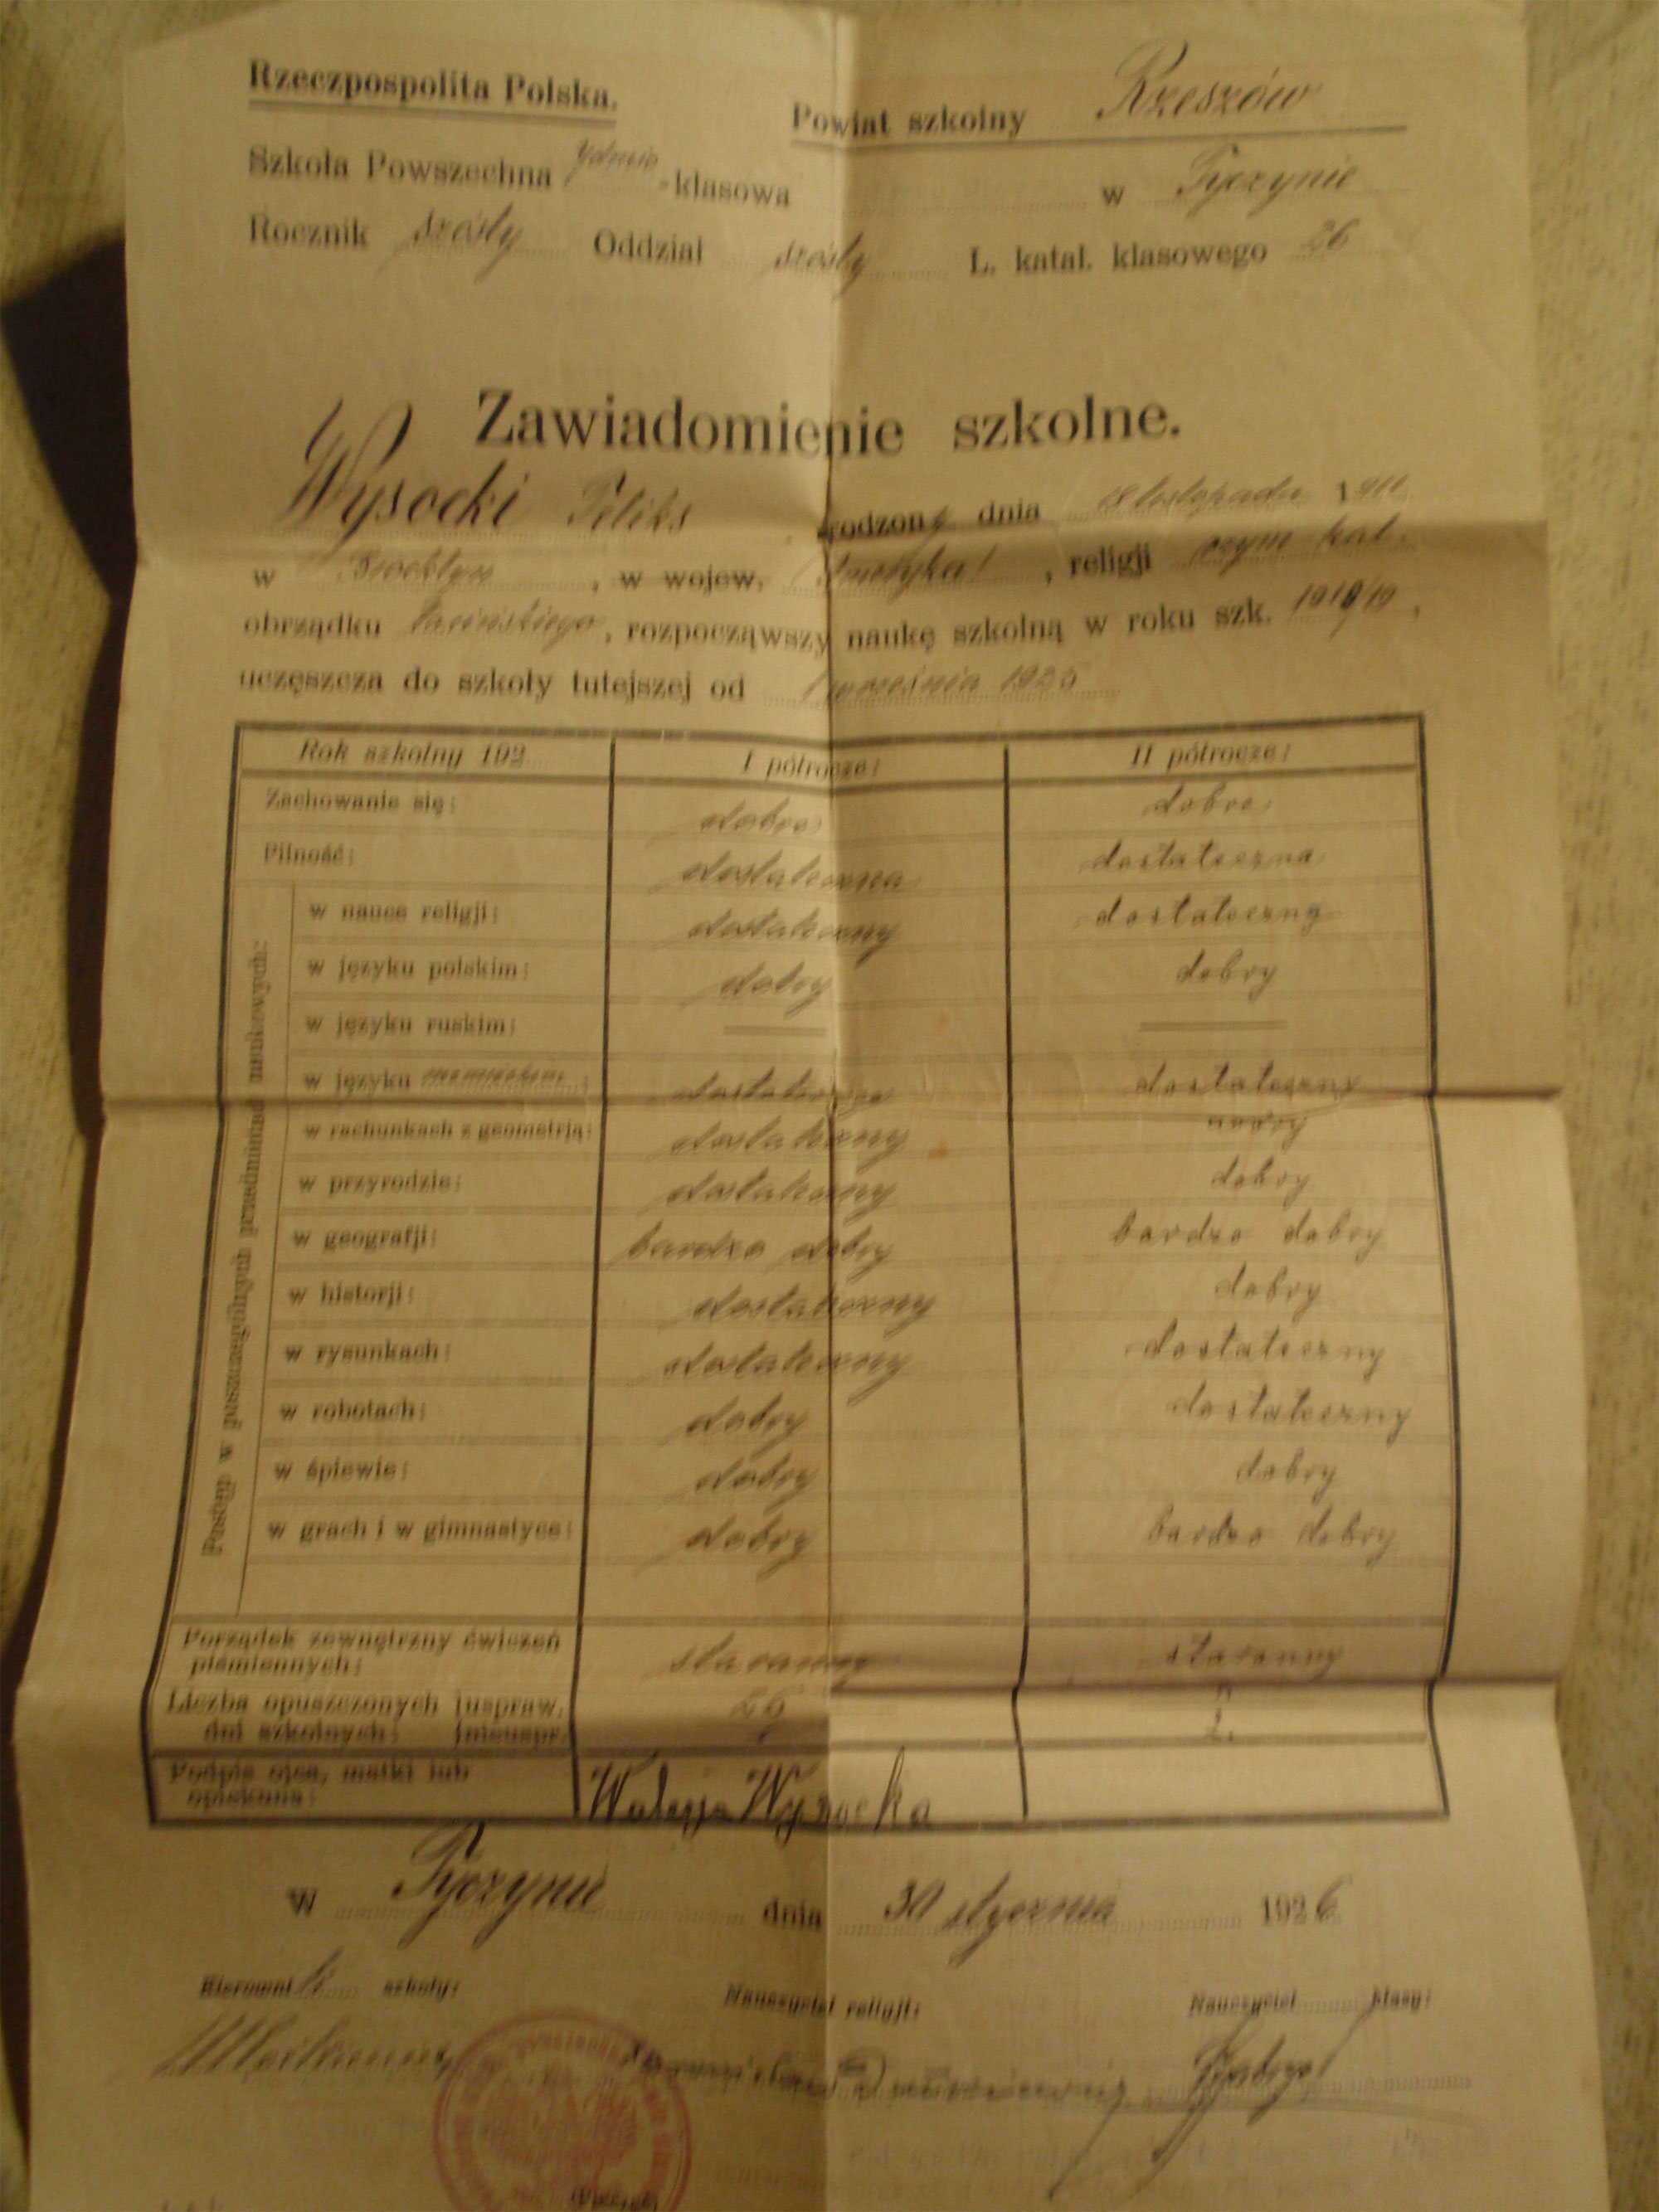 Rzeczpospolita Polska.
Powiat szkolny Rzeszów
Szkoła Powszechna -klasowa w Tyczynie
Rocznik szósty Oddział szósty L. katal. klasowego 26
Zawiadomienie szkolne.
Wysocki Feliks rodzony dnia listopada 1911
w Brooklyn, w wojew. Ameryka, religji rzym kat.
obrządku łacińskiego, rozpocząwszy naukę szkolną w roku szk. 1918/19,
uczęszcza do szkoły tutejszej od 1 września 1925
Rok szkolny 192 I półrocze: II półrocze:
Zachowanie się: dobre dobre
Pilność: dostateczna dostateczna
Postęp w poszczególnych przedmiotach naukowych:
w nauce religji: dostateczny dostateczny
w języku polskim: dobry dobry
w języku ruskim:
w języku niemieckim: dostateczny dostateczny
w rachunkach z geometrją: dostateczny dobry
w przyrodzie: dostateczny dobry
w geografji: bardzo dobry bardzo dobry
w historji: dostateczny dobry
w rysunkach: dostateczny dostateczny
w robotach: dobry dostateczny
w śpiewie: dobry dobry
w grach i w gimnastyce: dobry bardzo dobry
Porządek zewnętrzny ćwiczeń
piśmiennych: staranny staranny
Liczba opuszczonych uspraw.
dni szkolnych: nieuspr. 2.
Podpis ojca, matki lub
opiekuna: Wysocka
W Tyczynie dnia 30 stycznia 1926
Kierownik szkoły: Nauczyciel religji: Nauczyciel klasy:
(Pieczęć)